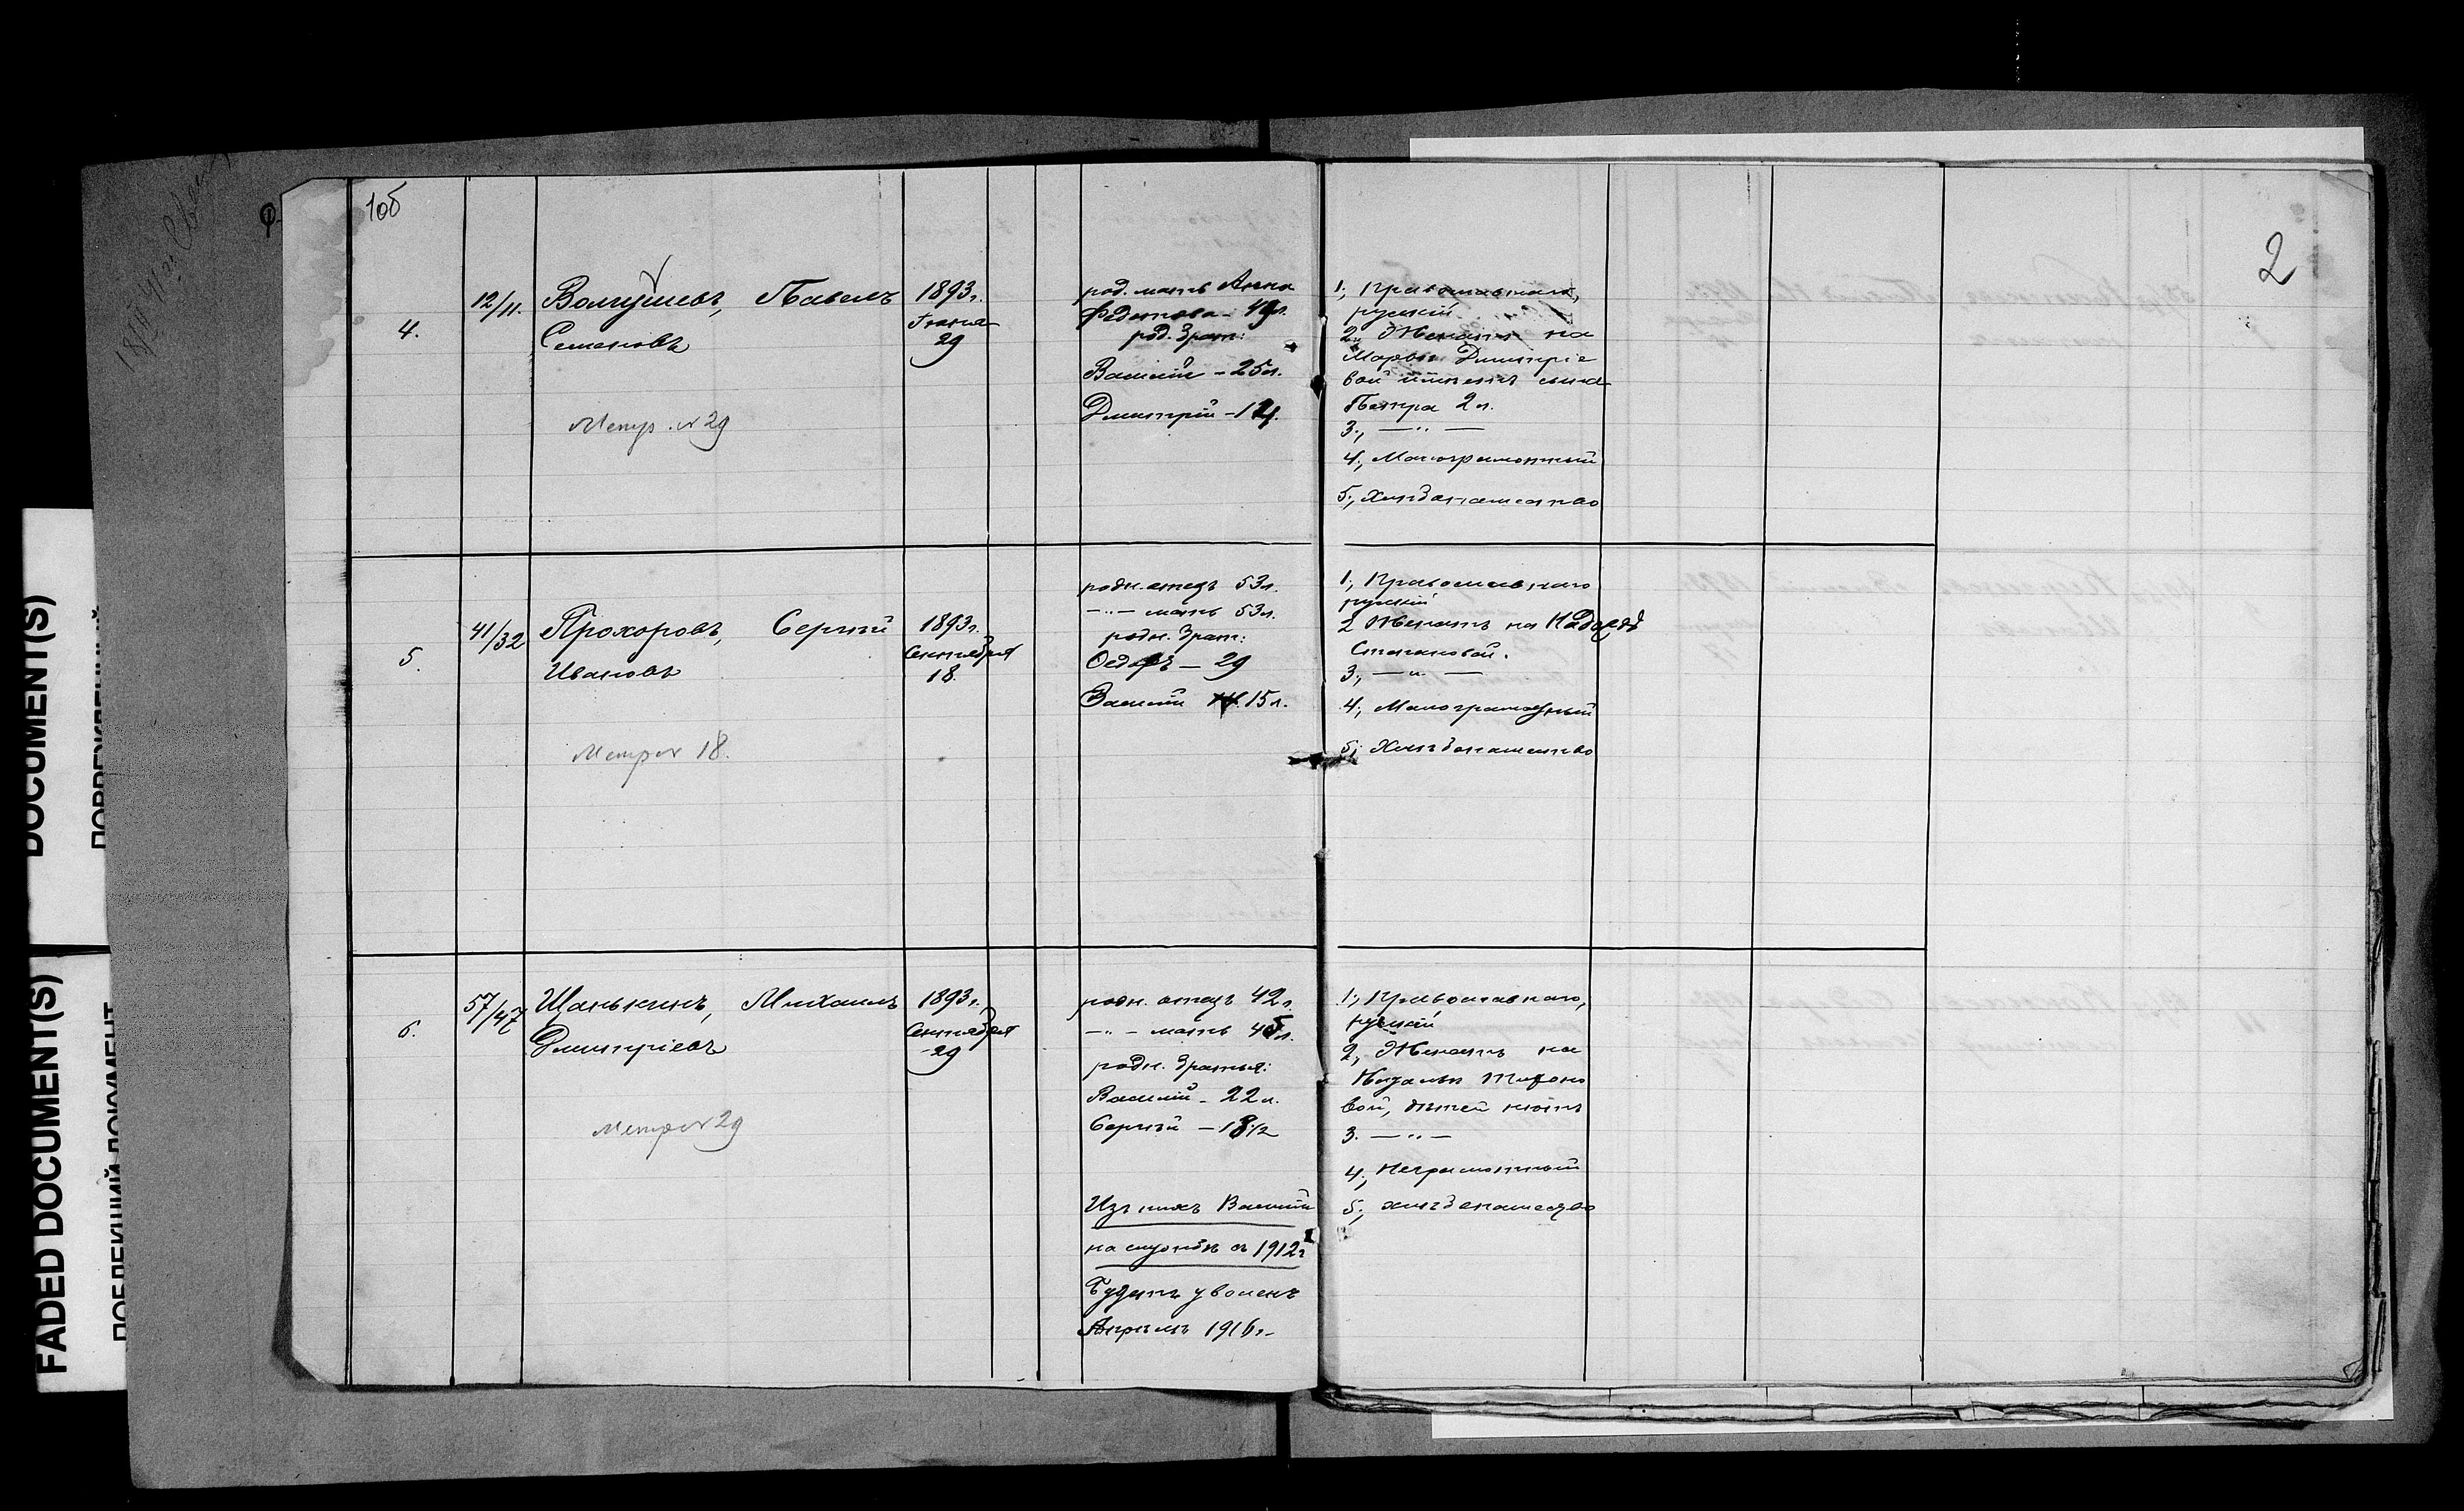 1об
2
4.
12/11.
Волгушевъ, Павелъ
Семеновъ
Метр. № 29
1893г.
Іюня
29
род. мать Анна
Федотова - 49л.
род. брат:
Василій - 25л.
Дмитрій - 12л.
1, Православнаго,
русскій
2, Женатъ на
Марѳѣ Дмитріе
вой имѣетъ сына
Петра 2 л.
3., — „ —
4., Малограмотный
5., Хлѣбопашество
5.
41/32
Прохоровъ, Сергѣй
Ивановъ
Метр № 18.
1893г.
Сентября
18.
родн. отецъ 53л.
— „ — мать 53л.
родн. брат:
Ѳедоръ — 29
Василій 15л.
1., Православнаго
русскій
2 Женатъ на
Степановой.
3., — „ —
4., Малограмотный
5., Хлѣбопашество
6.
57/47
Шанькинъ, Михаилъ
Дмитріевъ
Метр № 29
1893г.
Сентября
29
родн. отецъ 42л.
— „ — мать 45л.
родн. братья:
Василій - 22л.
Сергѣй — 18 1/2
Изъ нихъ Василій
на службѣ съ 1912г
Будетъ уволенъ
Апрѣль 1916г.
1., Православнаго,
русскій
2, Женатъ на
вой, дѣтей нѣтъ
3. — „ —
4., Неграмотный
5., хлѣбопашество
DOCUMENT(S)
FADED DOCUMENT(S)